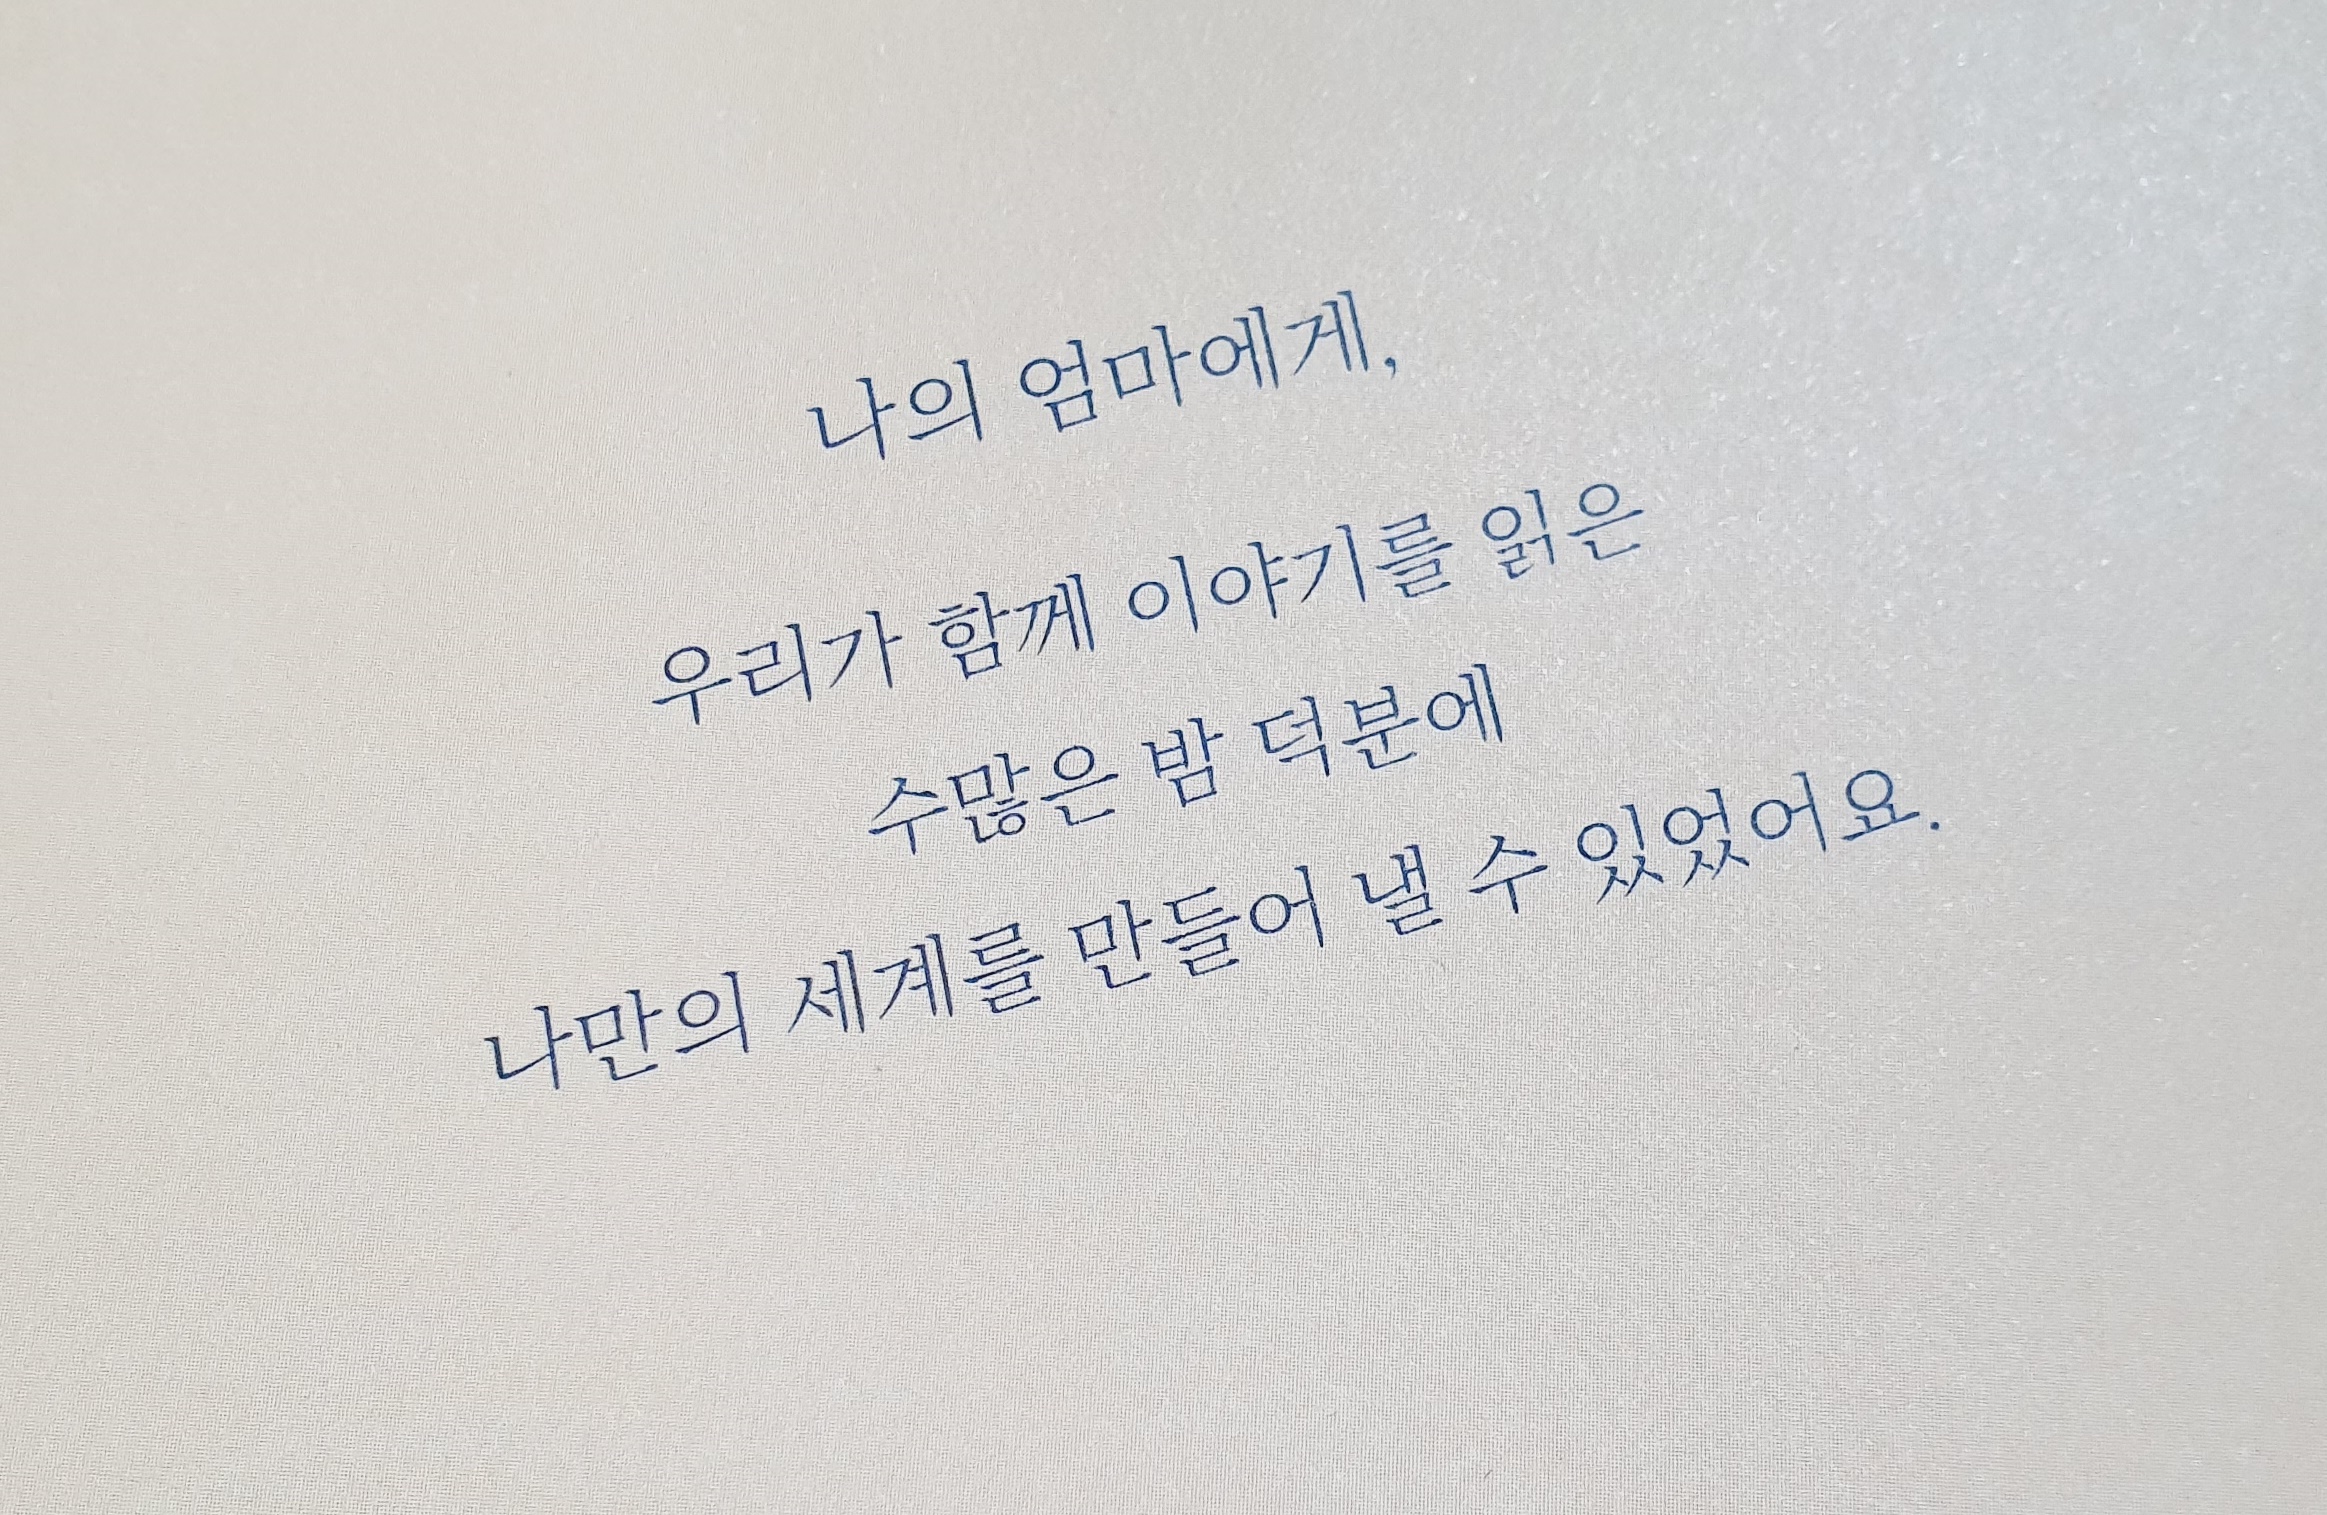 나의 엄마에게,
우리가 함께 이야기를 읽은
수많은 밤 덕분에
나만의 세계를 만들어 낼 수 있었어요.